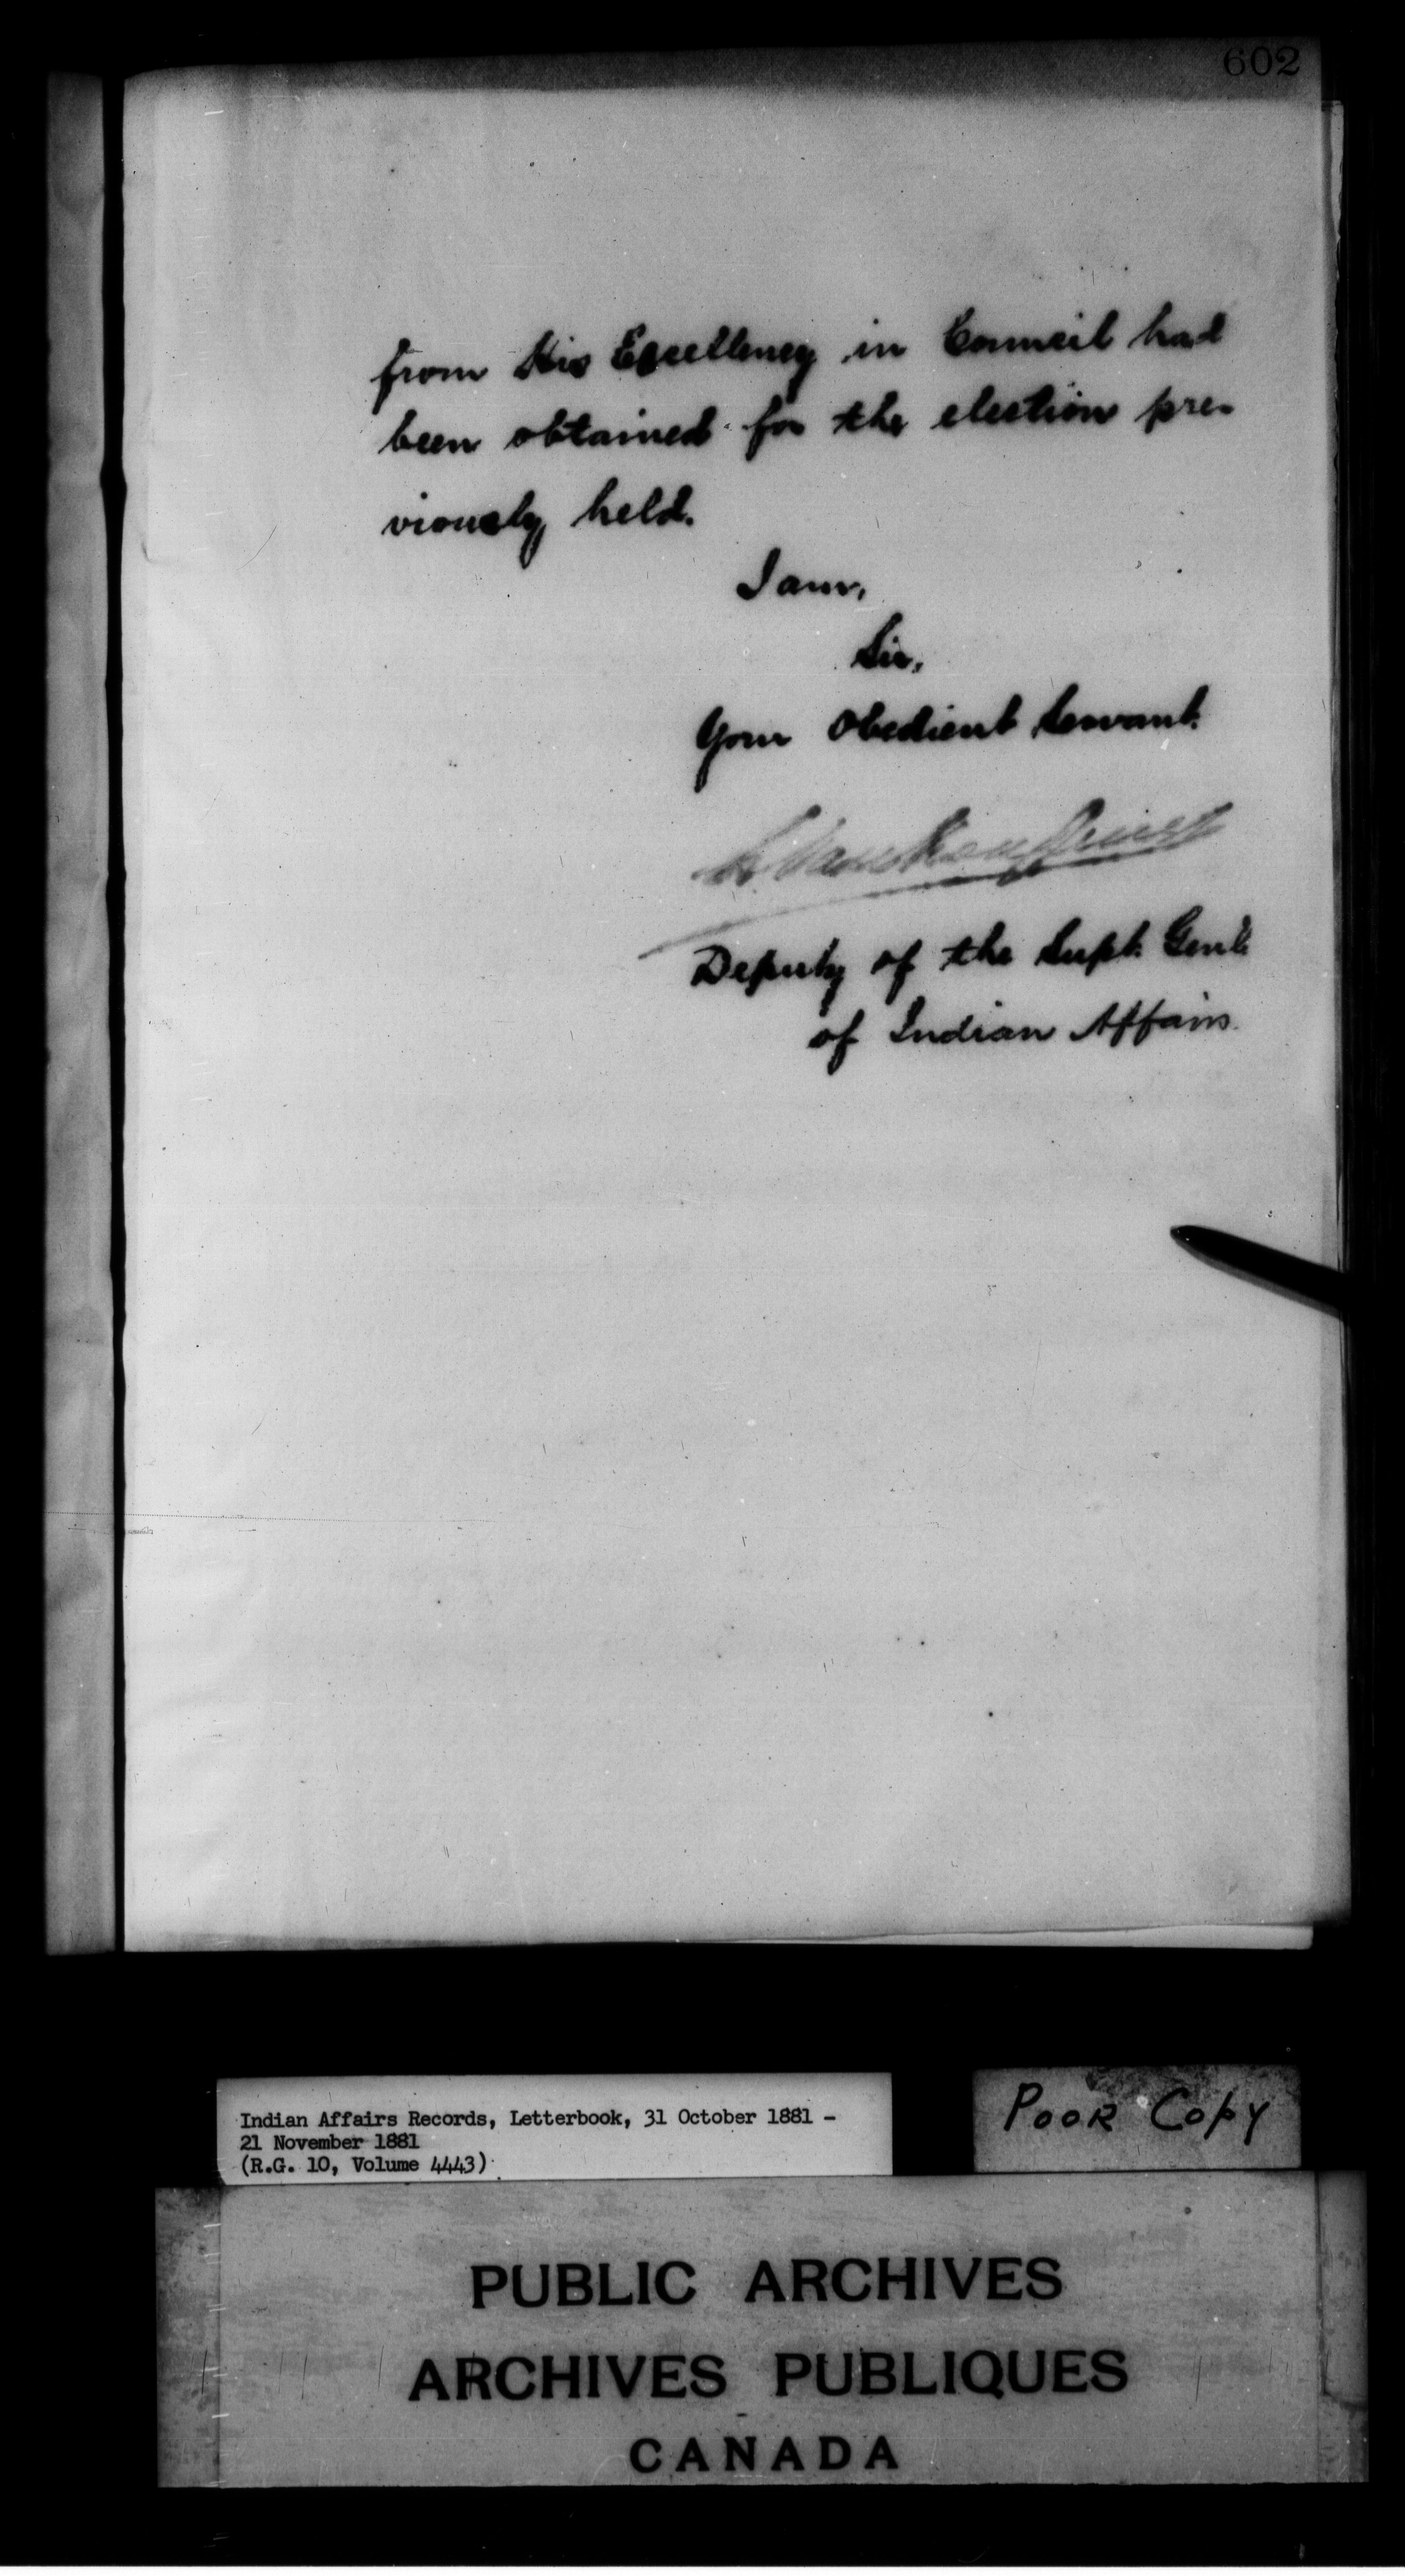 602
from His Excellency in Council had
been obtained for the election pre-
viously held.
I am,
Sir,
Your Obedient Servant.
L. VanKoughnet
Deputy of the Supt. Genl.
of Indian Affairs.
Indian Affairs Records, Letterbook, 31 October 1881 -
21 November 1881
(R.G. 10, Volume 4443)
Poor Copy
PUBLIC ARCHIVES
ARCHIVES PUBLIQUES
CANADA